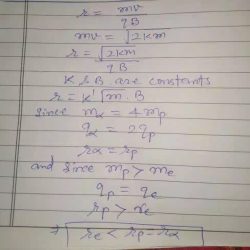 r = mv / qB
mv = √2km
r = √2km / qB
K & B are constants
r = k' √m . B
since mα = 4mp
qα = 2qp
rα = rp
and since mp > me
qp = qe
rp > re
⇒ re < rp = rα